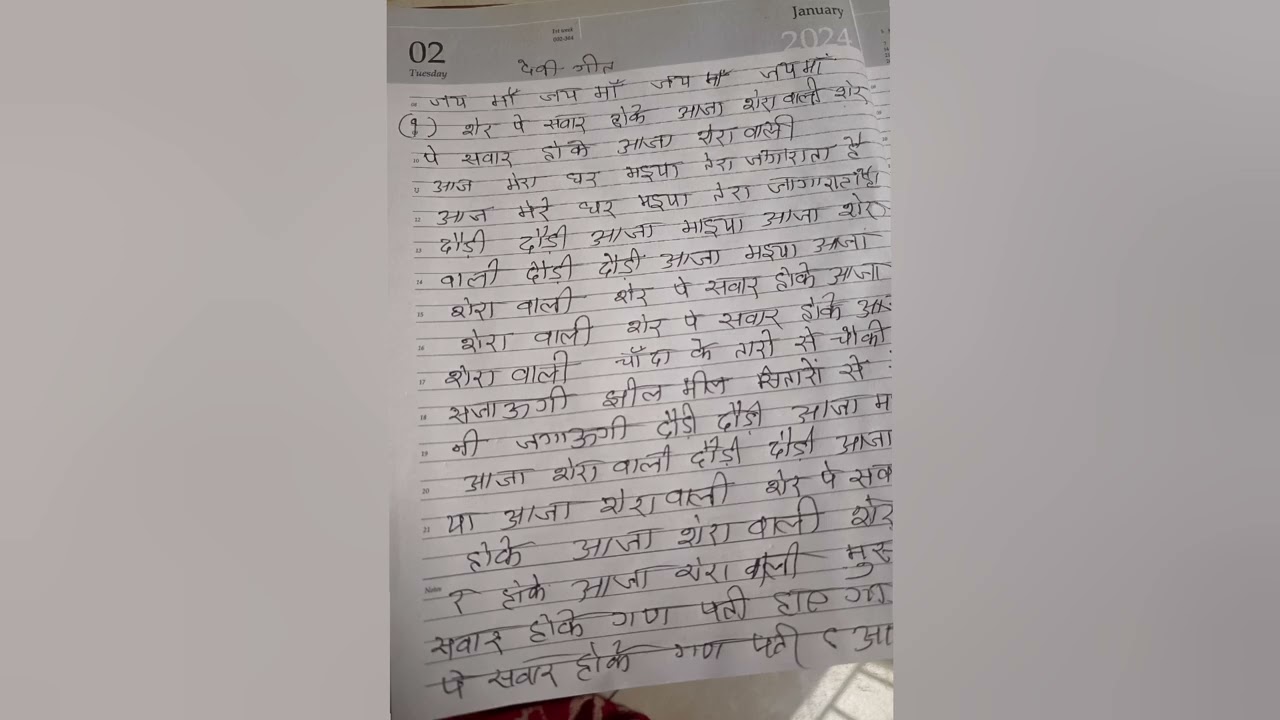 January
2024
02
Tuesday
1st week
002-364
देवी गीत
जय माँ जय माँ जय माँ जय मां
(१) शेर पे सवार होके आजा शेरा वाली शेर
पे सवार होके आजा शेरा वाली
आज मेरा घर मइया तेरा जगाराता है
आज मेरे घर मइया तेरा जागाराता है
दौड़ी दौड़ी आजा माइया आजा शेरा
वाली दौड़ी दौड़ी आजा मइया आजा
शेरा वाली शेर पे सवार होके आजा
शेरा वाली शेर पे सवार होके आज
शेरा वाली चाँदा के तारो से चौकी
सजाऊगी झील मील सितारों से
नी जगाऊगी दौड़ी दौड़ी आजा म
आजा शेरा वाली दौड़ी दौड़ी आजा
या आजा शेरा वाली शेर पे सव
होके आजा शेरा वाली शेर
र होके आजा शेरा वाली मुस
सवार होके गण पती
पे सवार होके गण पती आ